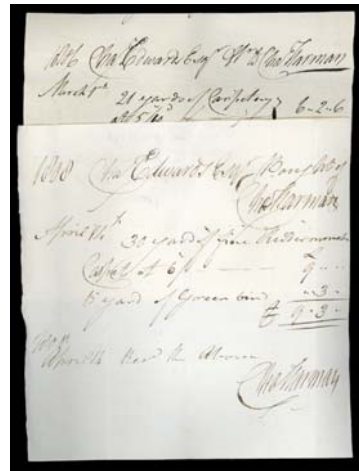 1806 Chaˢ Edwards Esqʳ Chaˢ Harman
March 1ˢᵗ 21 yards of Carpeting 6-2-6
at 5/10
1808 Chaˢ Edwards Esqʳ Bought of
Chaˢ Harman
April 14ᵗʰ 30 yards of fine Kidderminster
Carpet at 6/ 9
15 yards of Green 3
£ 9-3
April 14 Recᵈ the Above
Chaˢ Harman